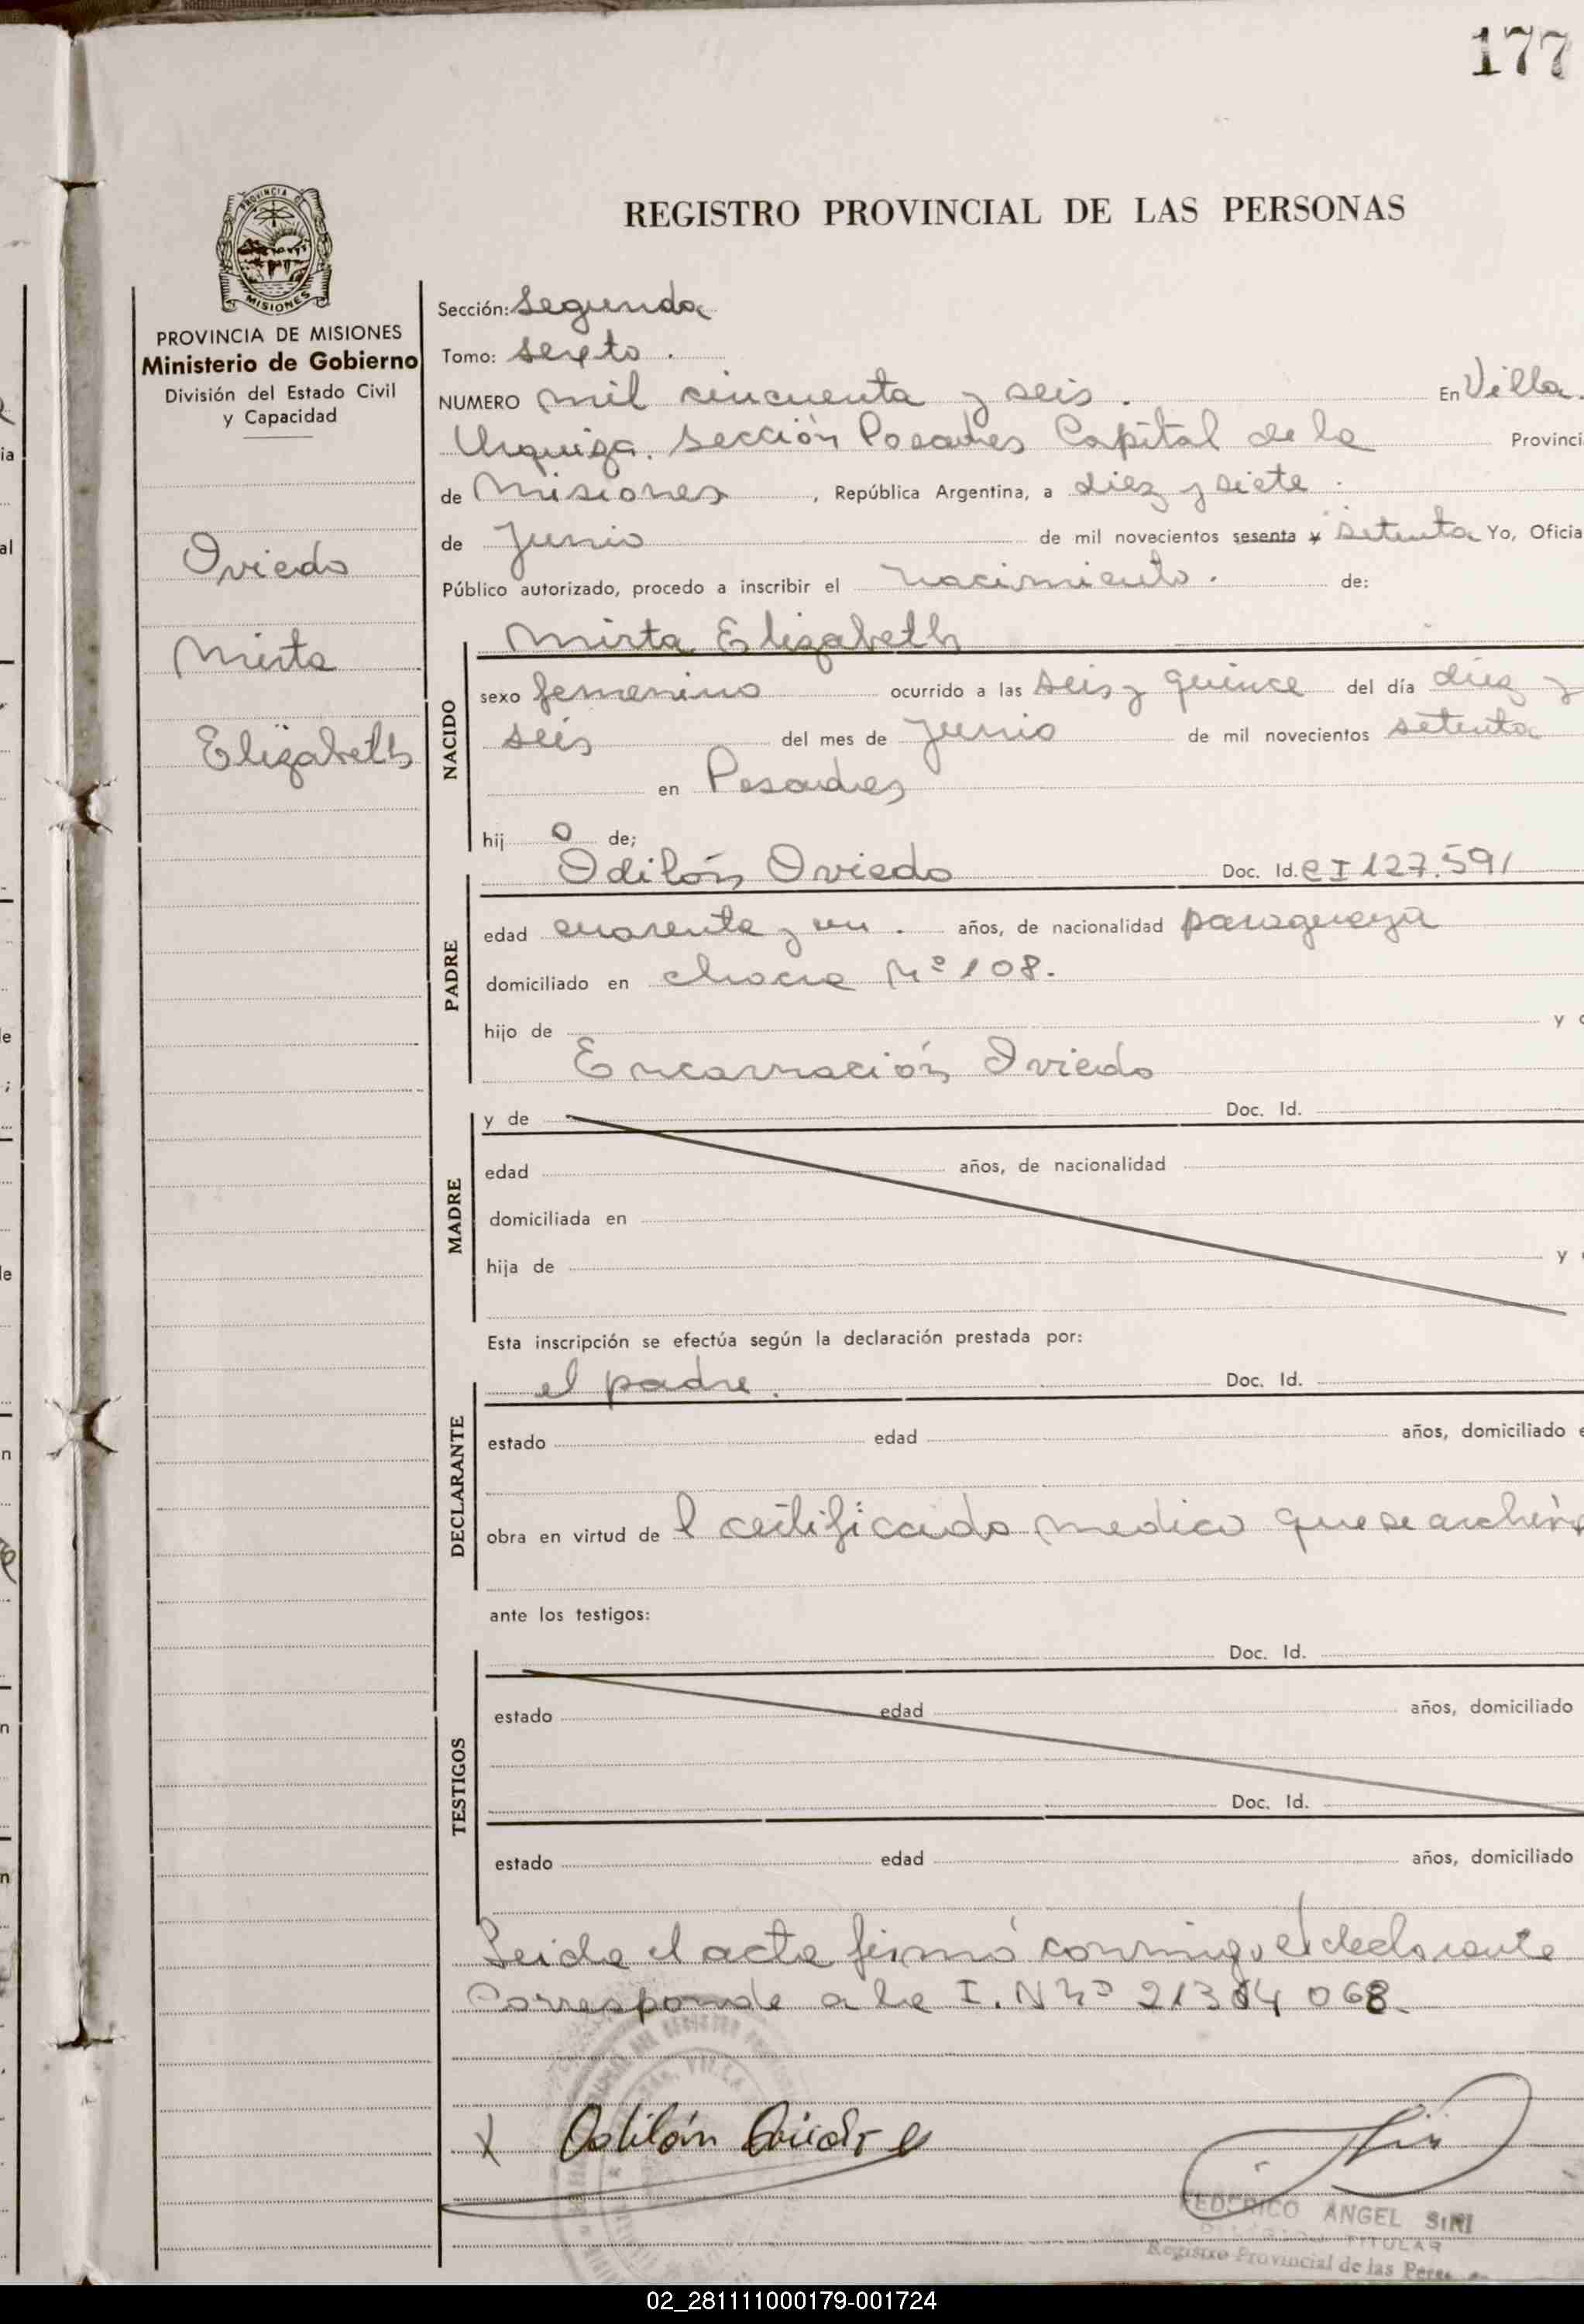 177
REGISTRO PROVINCIAL DE LAS PERSONAS
PROVINCIA DE
MISIONES
PROVINCIA DE MISIONES
Ministerio de Gobierno
División del Estado Civil
y Capacidad
Oviedo
Mirta
Elizabeth
Sección: Segunda
Tomo: Sexto.
NUMERO mil cincuenta y seis. En Villa
Urquiza. Sección Posadas Capital de la Provinci
de Misiones, República Argentina, a diez y siete.
de Junio de mil novecientos sesenta y setenta Yo, Oficia
Público autorizado, procedo a inscribir el nacimiento. de:
NACIDO
Mirta Elizabeth
sexo femenino ocurrido a las seis y quince del día diez y
seis del mes de Junio de mil novecientos setenta
en Posadas
hij o de;
PADRE
Odilón Oviedo Doc. Id. C I 127.591
edad cuarenta y un. años, de nacionalidad paraguaya
domiciliado en chacra Nº 108.
hijo de y
Encarnación Oviedo
MADRE
y de Doc. Id.
edad años, de nacionalidad
domiciliada en
hija de y
Esta inscripción se efectúa según la declaración prestada por:
DECLARANTE
el padre. Doc. Id.
estado edad años, domiciliado e
obra en virtud de l certificado medico que se archiva
ante los testigos:
TESTIGOS
Doc. Id.
estado edad años, domiciliado
Doc. Id.
estado edad años, domiciliado
Leida el acta firmó conmigo el declarante
Corresponde a la I. N Nº 21304 068.
X Odilón Oviedo
FEDERICO ANGEL SIRI
TITULAR
Registro Provincial de las Perso
02_281111000179-001724